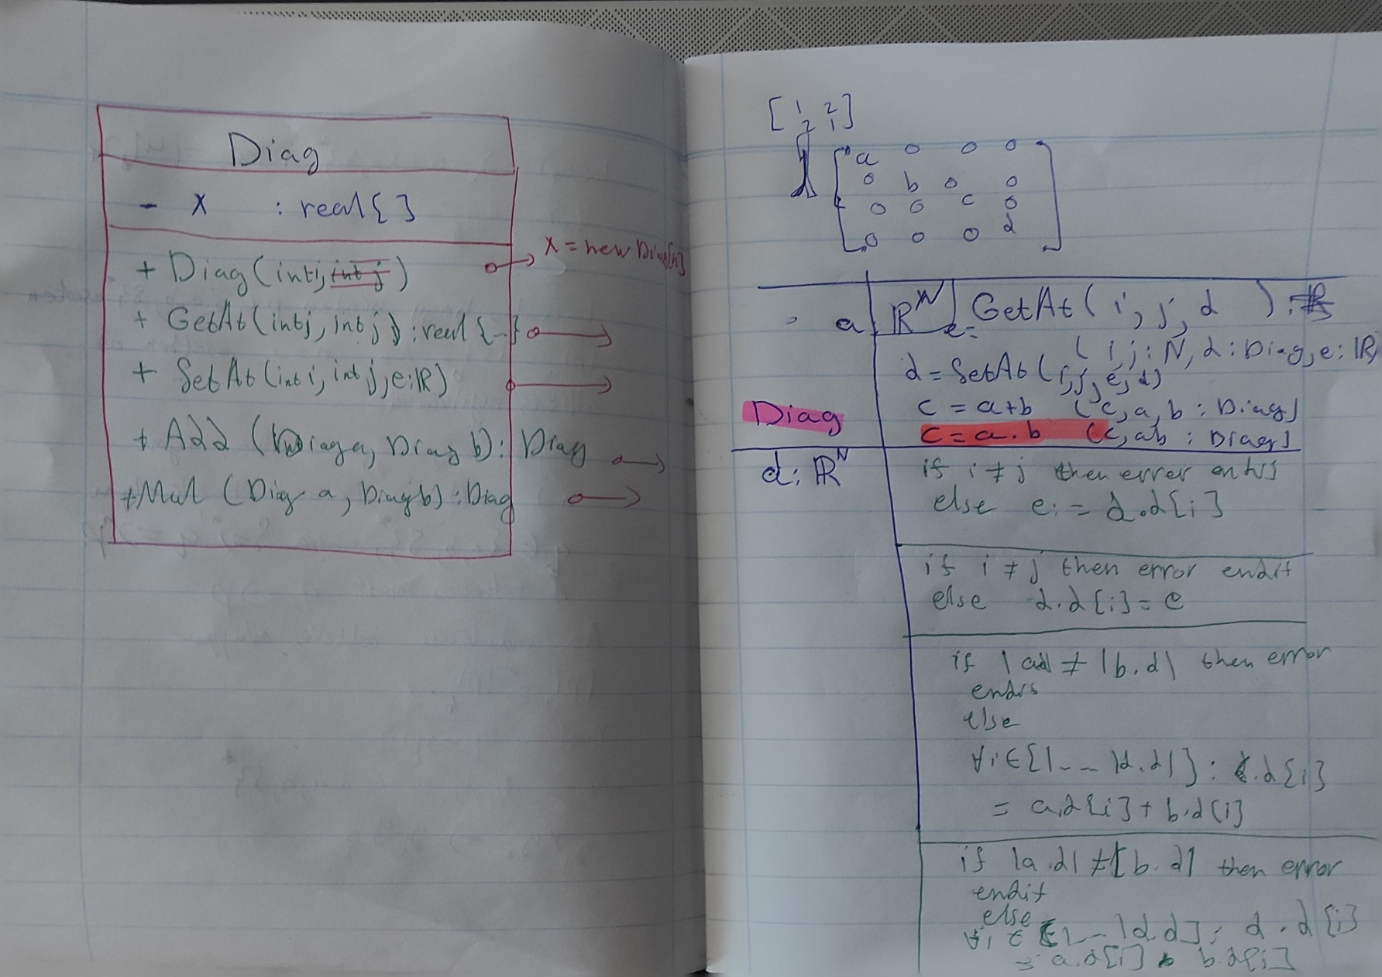 Diag
- x : real[ ]
+ Diag(int i, int j)
x = new Diag[n]
+ GetAt(int j, int j) : real {...}
+ SetAt(int i, int j, e:ℝ)
+ Add (Diag a, Diag b) : Diag
+ Mul (Diag a, Diag b) : Diag
[ 1 2
2 1 ]
a 0 0 0
0 b 0 0
0 0 c 0
0 0 0 d
a ℝ^N e:= GetAt( i, j, d ) : ℝ
( i, j : ℕ, d : Diag, e : ℝ)
d = SetAt(i, j, e, d)
Diag
c = a+b (c, a, b : Diag)
c = a.b (c, a b : Diag)
d : ℝ^N
if i ≠ j then error endif
else e := d.d[i]
if i ≠ j then error endif
else d.d[i] = e
if |a.d| ≠ |b.d| then error
endif
else
∀i∈[1 -- |d.d|] : c.d[i]
= a.d[i] + b.d[i]
if |a.d| ≠ |b.d| then error
endif
else
∀i ∈ [1 -- |d.d|] : d.d[i]
= a.d[i] * b.d[i]